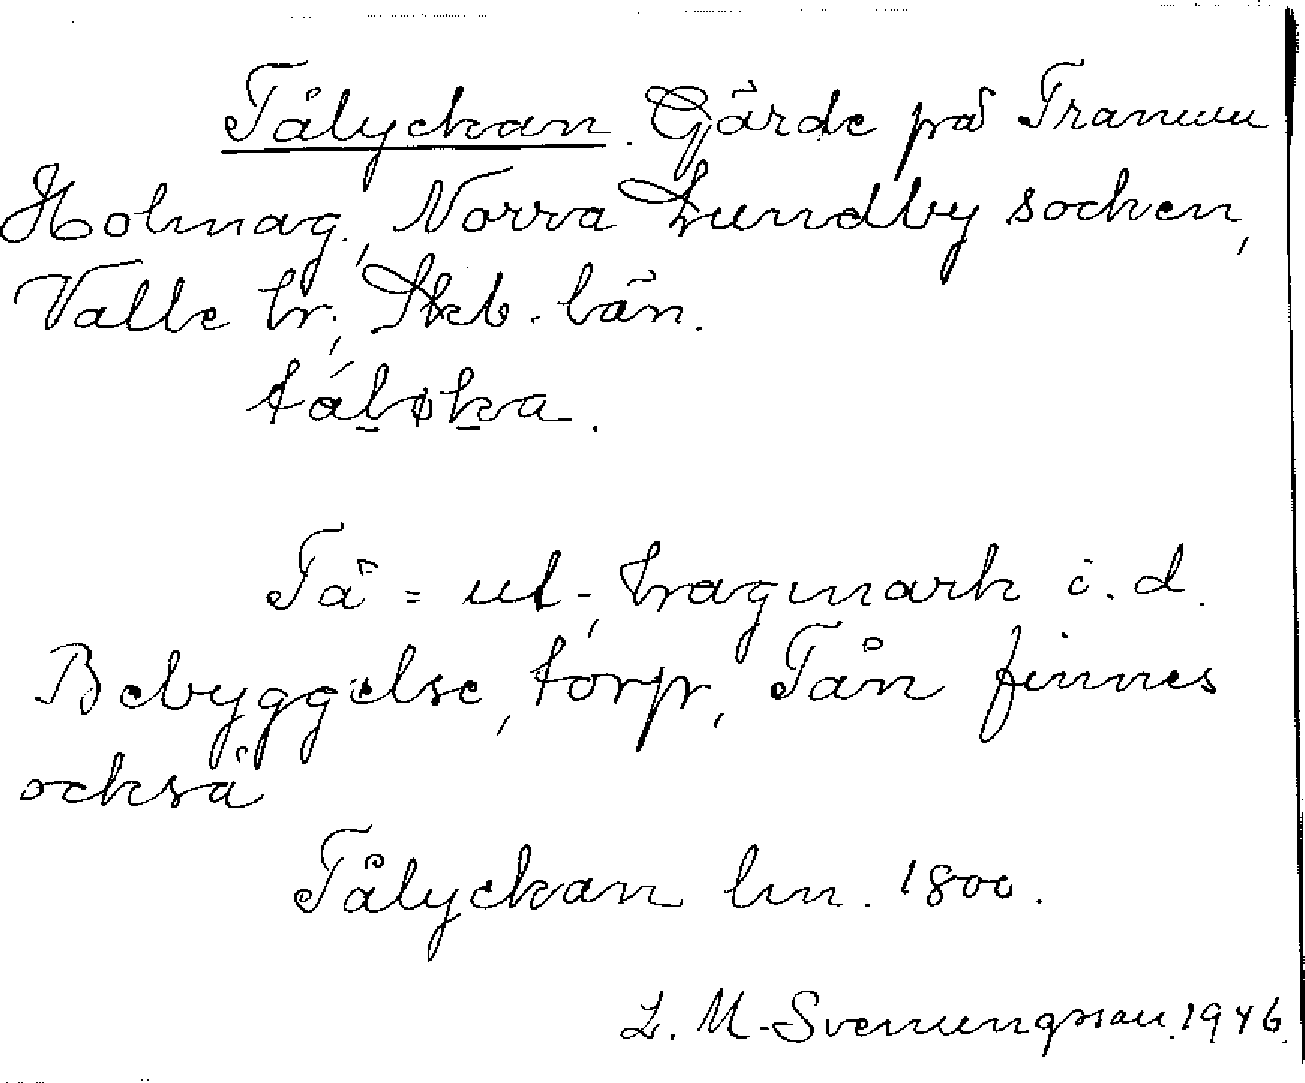 Tålyckan. Gärde på Tranum
Holmag., Norra Lundby socken,
Valle hr., Skb. län.
táløka.
Tå = ut-, hagmark i. d.
Bebyggelse, torp, Tån finnes
också
Tålyckan lm. 1800.
L. M. Svenungsson. 1946.